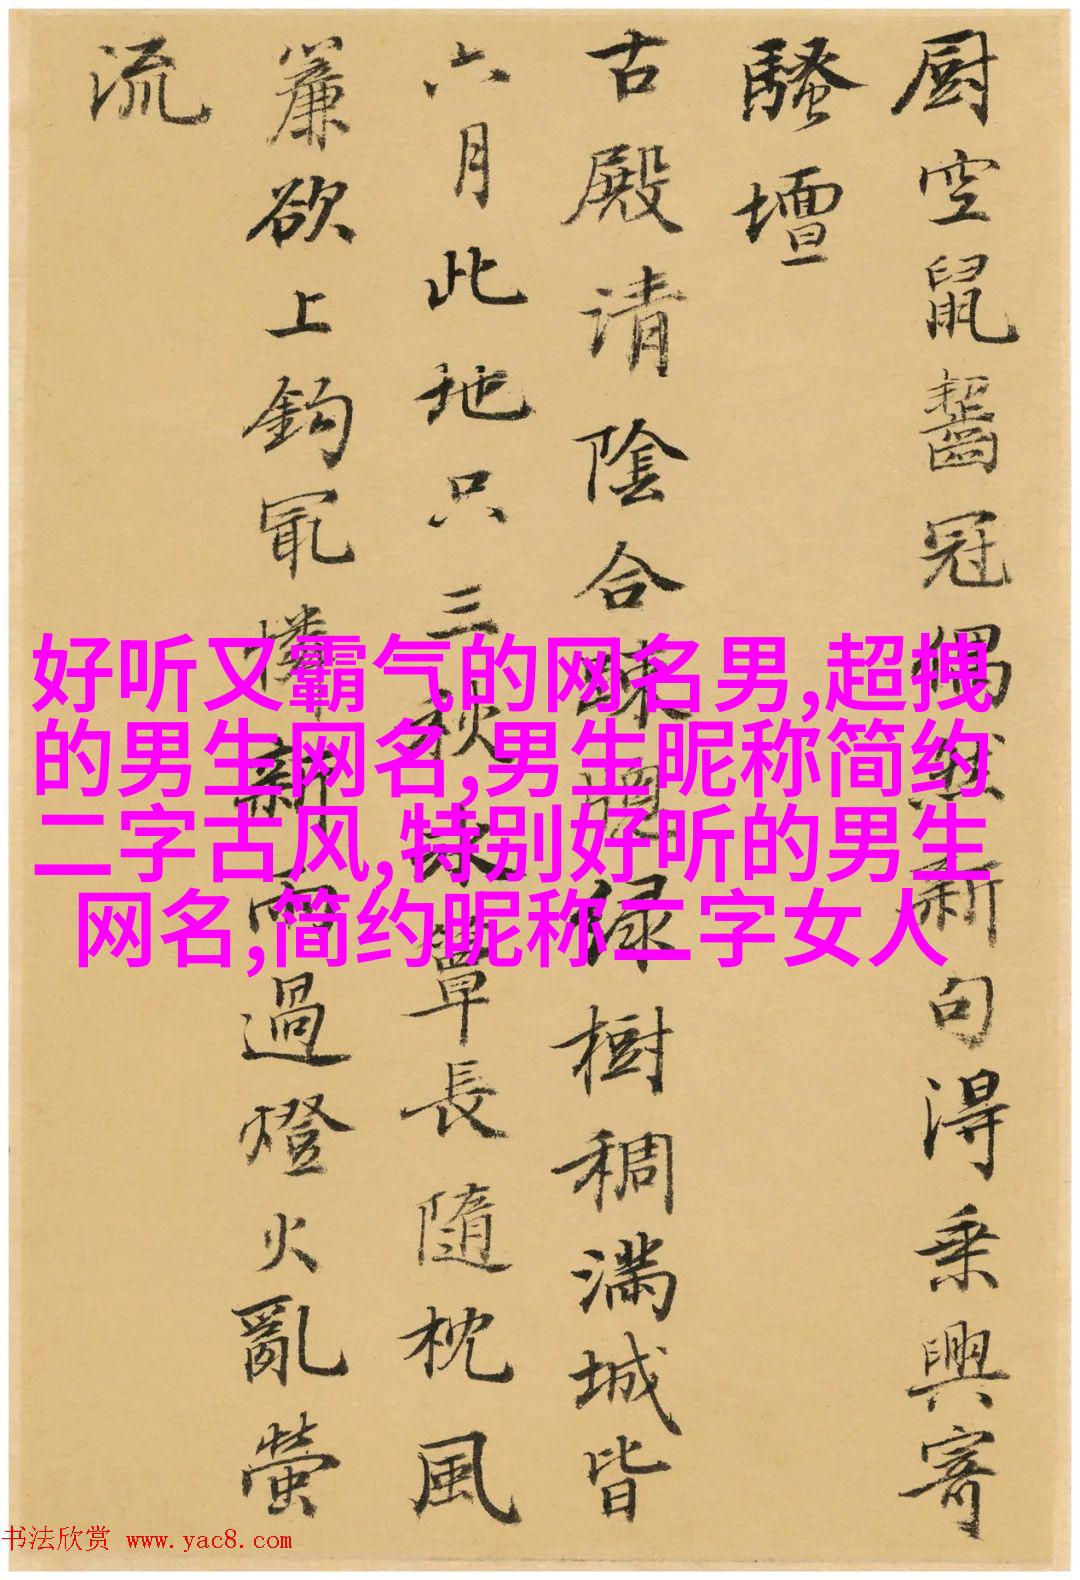 厨空鼠齧冠偶然新句得乘興寄
騷壇
古殿清陰合疎绿樹稠满城皆
六月此地只三秋冰簟長隨枕風
簾欲上鈎冣憐新雨過燈火亂螢
流
好听又霸气的网名男,超拽
的男生网名,男生昵称简约
二字古风,特别好听的男生
网名,简约昵称二字女人
书法欣赏 www.yac8.com